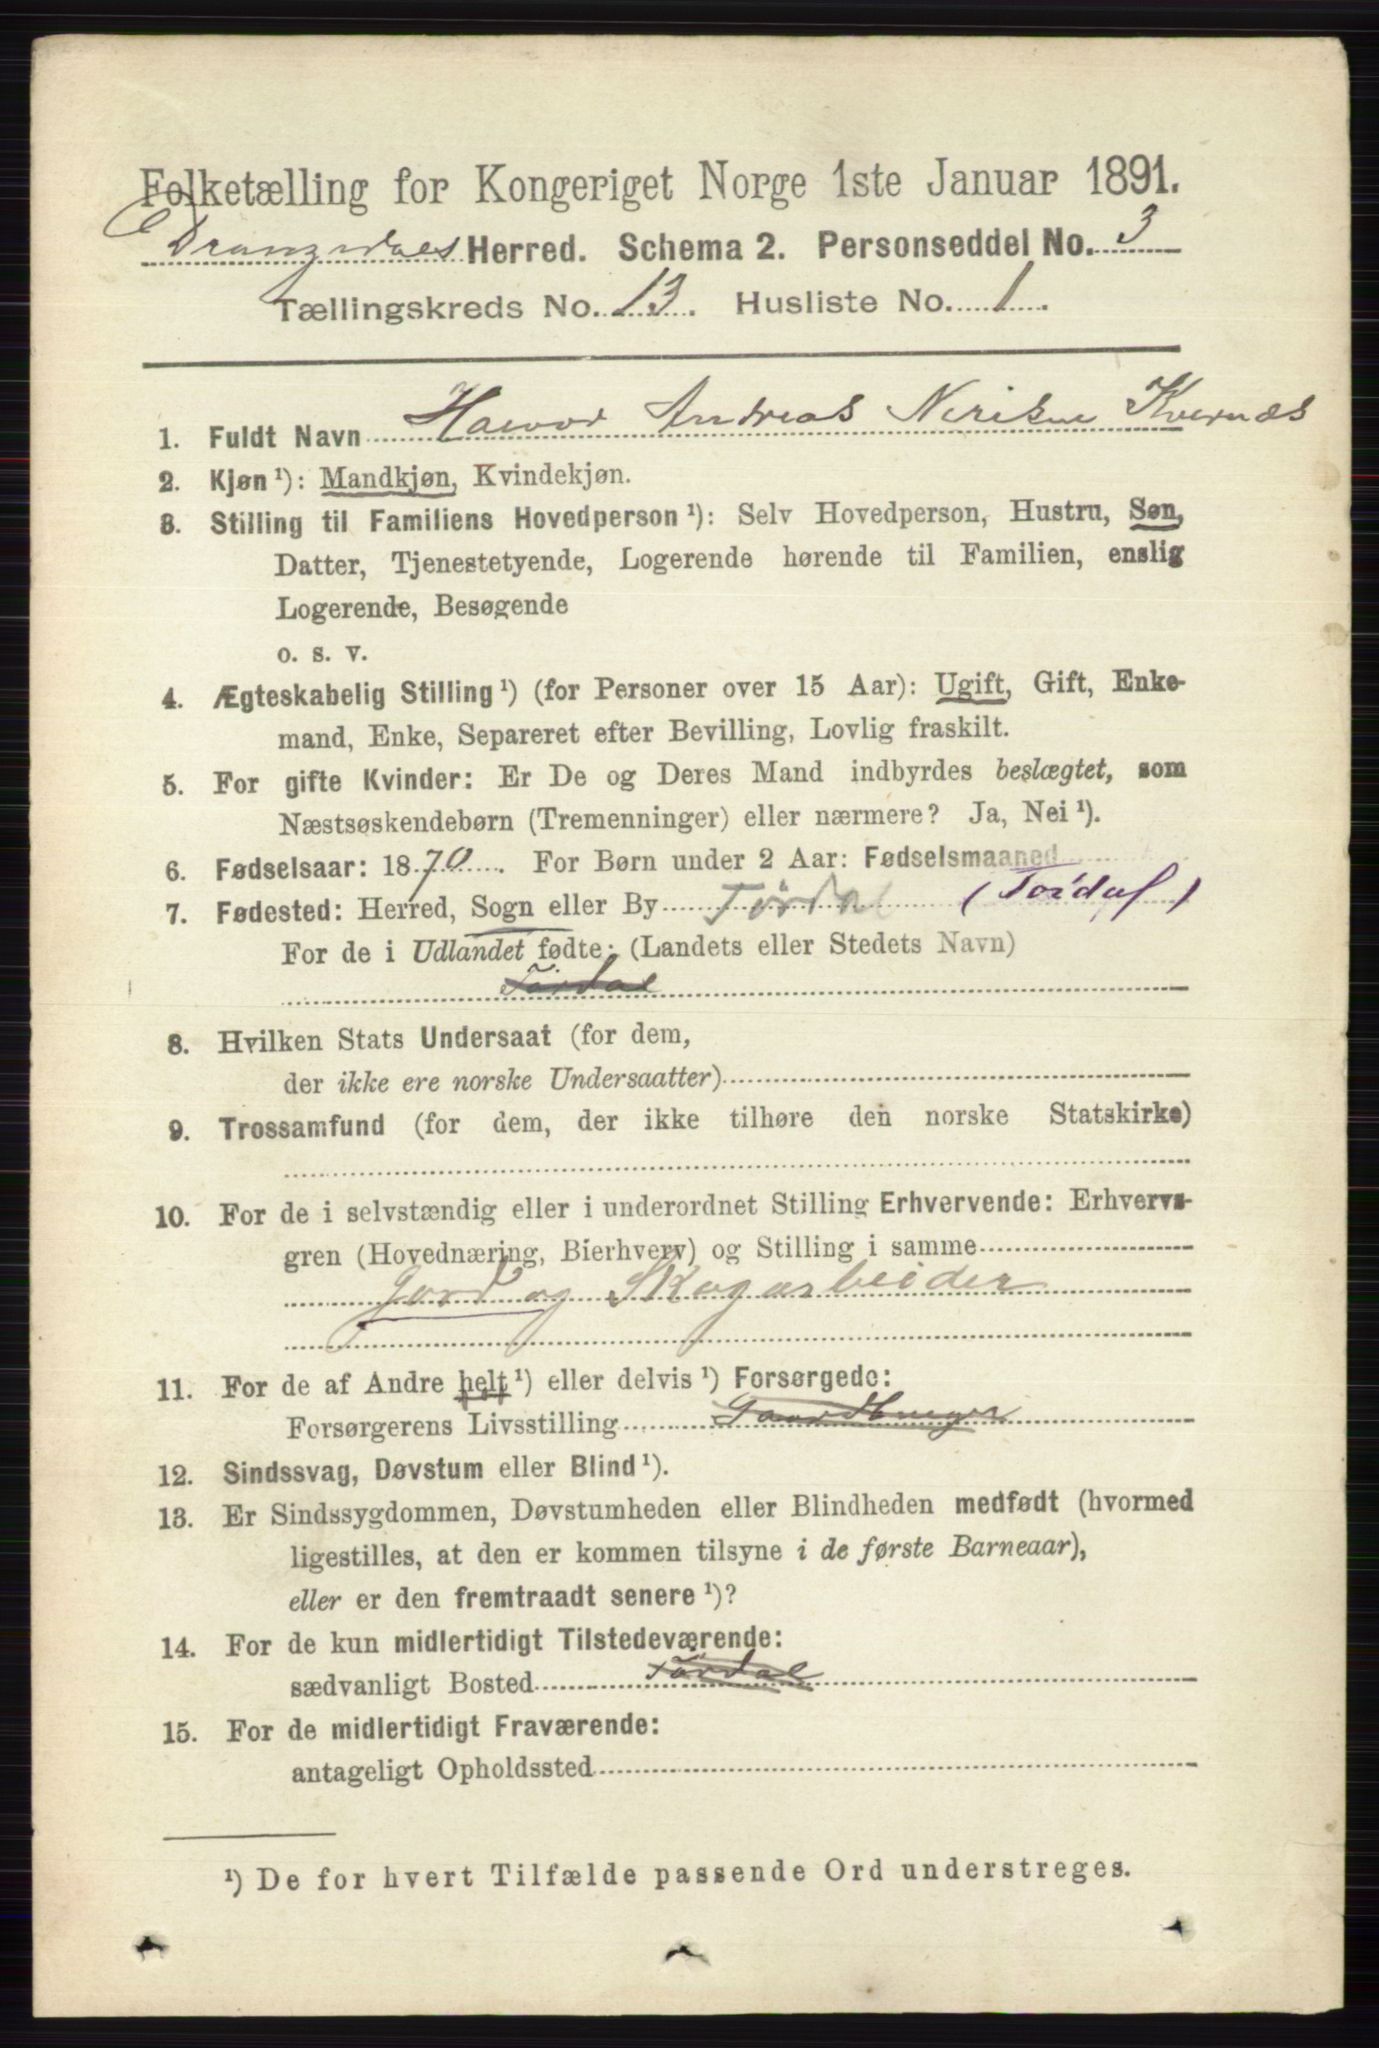 Folketælling for Kongeriget Norge 1ste Januar 1891.
Drangedals Herred. Schema 2. Personseddel No. 3
Tællingskreds No. 13. Husliste No. 1.
1. Fuldt Navn Haavor Andreas Nerisen Kvernæs
2. Kjøn ¹): Mandkjøn, Kvindekjøn.
3. Stilling til Familiens Hovedperson ¹): Selv Hovedperson, Hustru, Søn,
Datter, Tjenestetyende, Logerende hørende til Familien, enslig
Logerende, Besøgende
o. s. v.
4. Ægteskabelig Stilling ¹) (for Personer over 15 Aar): Ugift, Gift, Enke-
mand, Enke, Separeret efter Bevilling, Lovlig fraskilt.
5. For gifte Kvinder: Er De og Deres Mand indbyrdes beslægtet, som
Næstsøskendebørn (Tremenninger) eller nærmere? Ja, Nei ¹).
6. Fødselsaar: 1870. For Børn under 2 Aar: Fødselsmaaned
7. Fødested: Herred, Sogn eller By Tørdal (Tørdal)
For de i Udlandet fødte: (Landets eller Stedets Navn)
Tördal
8. Hvilken Stats Undersaat (for dem,
der ikke ere norske Undersaatter)
9. Trossamfund (for dem, der ikke tilhøre den norske Statskirke)
10. For de i selvstændig eller i underordnet Stilling Erhvervende: Erhvervs-
gren (Hovednæring, Bierhverv) og Stilling i samme
Jord og Skogarbeider
11. For de af Andre helt ¹) eller delvis ¹) Forsørgede:
Forsørgerens Livsstilling Gaardbruger
12. Sindssvag, Døvstum eller Blind ¹).
13. Er Sindssygdommen, Døvstumheden eller Blindheden medfødt (hvormed
ligestilles, at den er kommen tilsyne i de første Barneaar),
eller er den fremtraadt senere ¹)?
14. For de kun midlertidigt Tilstedeværende:
sædvanligt Bosted Tördal
15. For de midlertidigt Fraværende:
antageligt Opholdssted
¹) De for hvert Tilfælde passende Ord understreges.